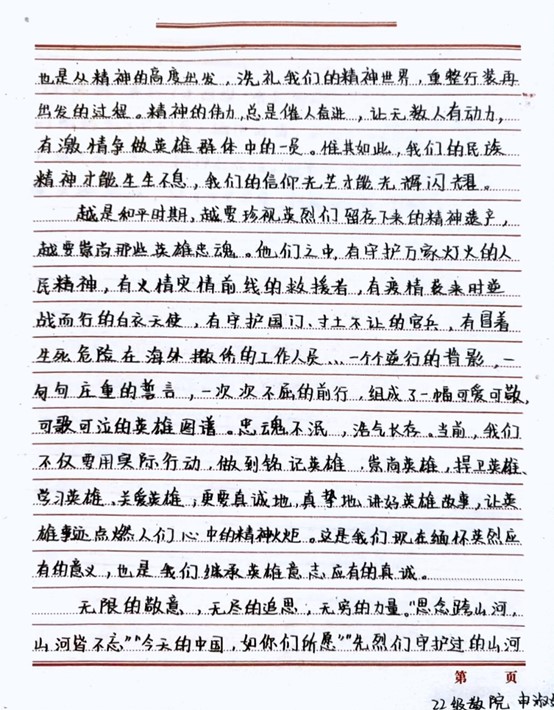 也是从精神的高度出发，洗礼我们的精神世界，重整行装再
出发的过程。精神的伟力，总是催人奋进，让无数人有动力，
有激情争做英雄群体中的一员。惟其如此，我们的民族
精神才能生生不息，我们的信仰光芒才能光辉闪耀。
越是和平时期，越要珍视英烈们留存下来的精神遗产，
越要崇尚那些英雄忠魂。他们之中，有守护万家灯火的人
民精神，有火情灾情前线的救援者，有疫情袭来时逆
战而行的白衣天使，有守护国门、寸土不让的官兵，有冒着
生死危险在海外撤侨的工作人员……一个个逆行的背影，一
句句庄重的誓言，一次次不屈的前行，组成了一幅可爱可敬，
可歌可泣的英雄图谱。忠魂不泯，浩气长存。当前，我们
不仅要用实际行动，做到铭记英雄、崇尚英雄，捍卫英雄、
学习英雄、关爱英雄，更要真诚地，真挚地讲好英雄故事，让英
雄事迹点燃人们心中的精神火炬。这是我们现在缅怀英烈应
有的意义，也是我们继承英雄意志应有的真诚。
无限的敬意，无尽的追思，无穷的力量。“思念跨山河，
山河皆不忘”“今天的中国，如你们所愿”“先烈们守护过的山河
第 页
22级教院 申淑